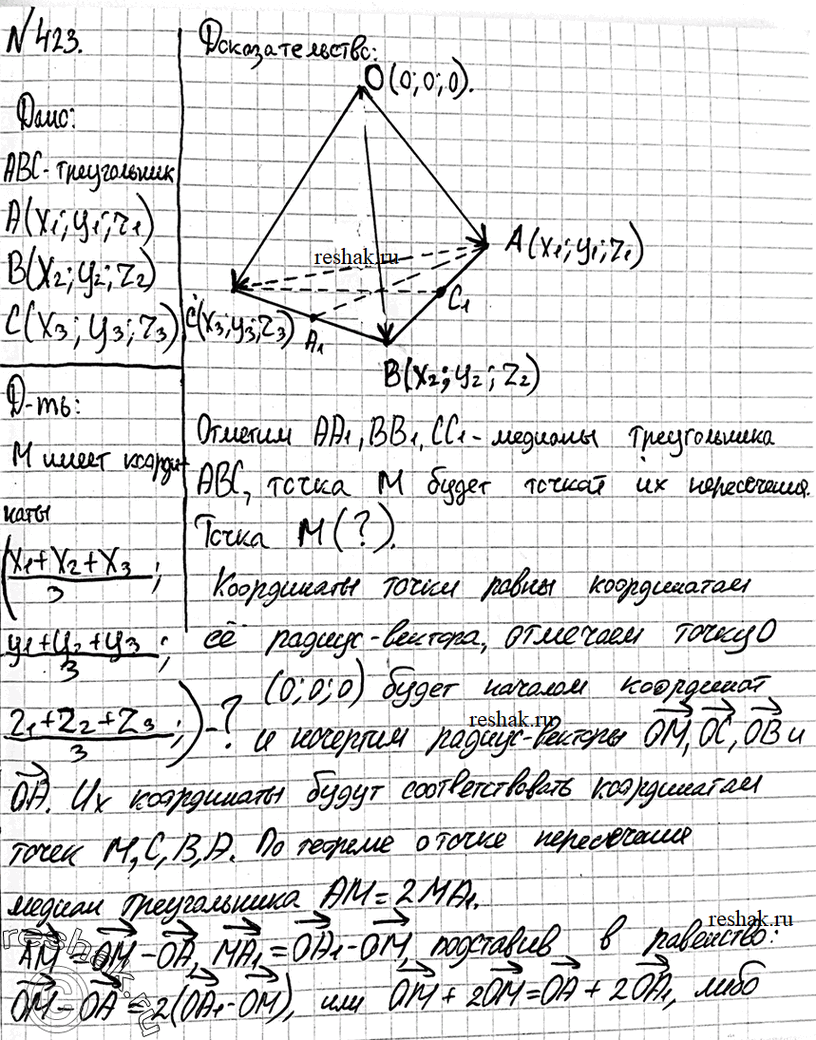 N423.
Дано:
ABC-треугольник
A(x₁; y₁; z₁)
B(x₂; y₂; z₂)
C(x₃; y₃; z₃)
Д-ть:
M имеет коорди-
наты
(x₁+x₂+x₃/3;
y₁+y₂+y₃/3;
z₁+z₂+z₃/3;)-?
Доказательство:
O(0;0;0).
reshak.ru
A(x₁; y₁; z₁)
C(x₃; y₃; z₃)
A₁
C₁
B(x₂; y₂; z₂)
Отметим AA₁, BB₁, CC₁-медианы треугольника
ABC, точка M будет точкой их пересечения.
Точка M(?).
Координаты точки равны координатам
её радиус-вектора, отмечаем точку O
(0;0;0) будет началом координат
reshak.ru
и начертим радиус-векторы OM⃗, OC⃗, OB⃗ и
OA⃗. Их координаты будут соответствовать координатам
точек M, C, B, A. По теореме о точке пересечения
медиан треугольника AM=2MA₁.
reshak.ru
AM⃗=OM⃗-OA⃗, MA₁⃗=OA₁⃗-OM⃗, подставив в равенство:
OM⃗-OA⃗=2(OA₁⃗-OM⃗), или OM⃗+2OM⃗=OA⃗+2OA₁⃗, либо
reshak.ru